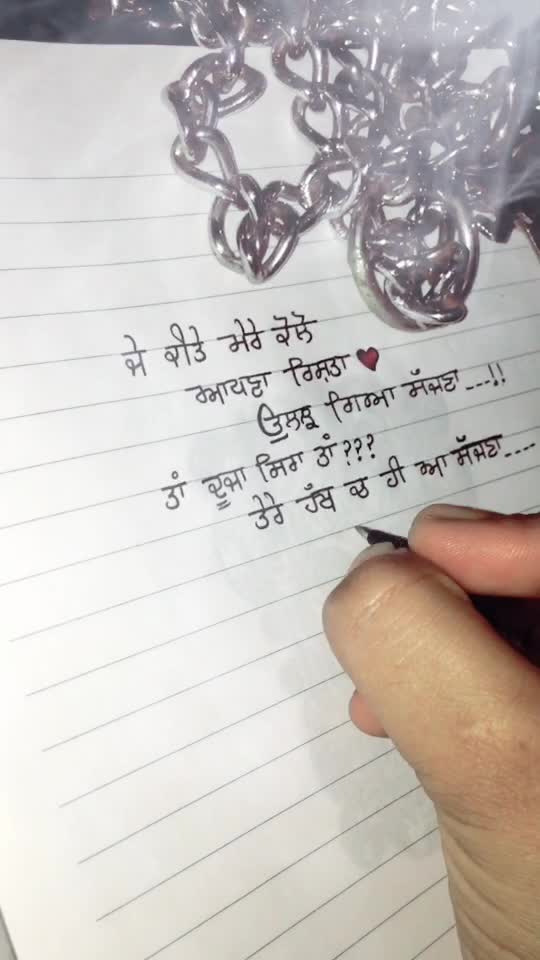 ਜੇ ਕੀਤੇ ਮੇਰੇ ਕੋਲੋਂ
ਆਪਣਾ ਰਿਸ਼ਤਾ ❤
ਉਲਝ ਗਿਆ ਸੱਜਣਾ ---!!
ਤਾਂ ਦੂਜਾ ਸਿਰਾ ਤਾਂ???
ਤੇਰੇ ਹੱਥ ਚ ਹੀ ਆ ਸੱਜਣਾ----